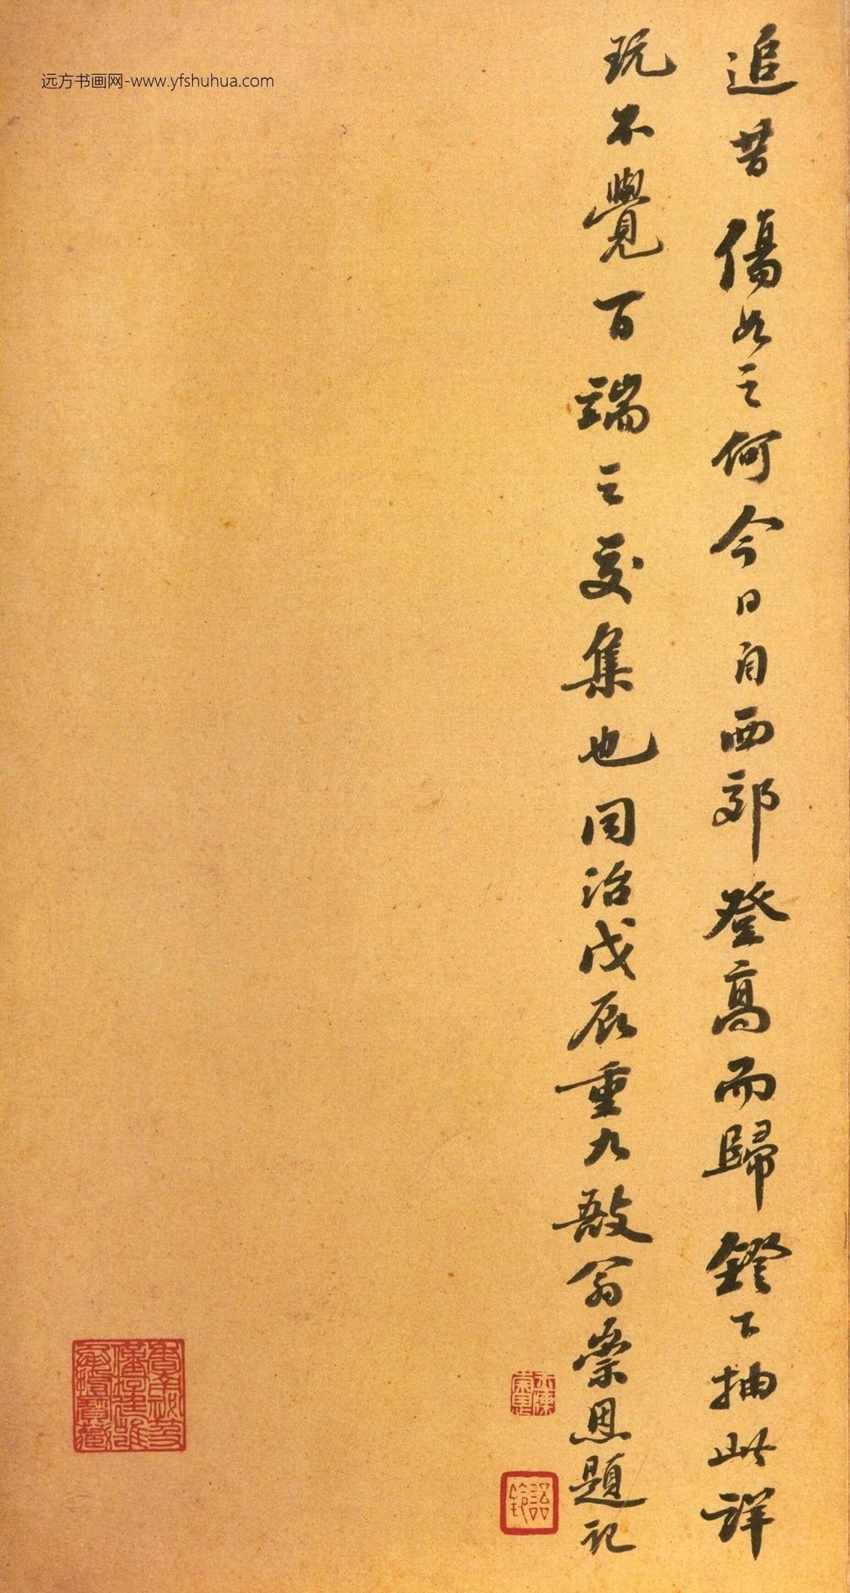 追昔傷如之何今日自西郊登高而歸鐙下抽此詳
玩不覺百端之交集也同治戊辰重九敔翁崇恩題記
远方书画网-www.yfshuhua.com